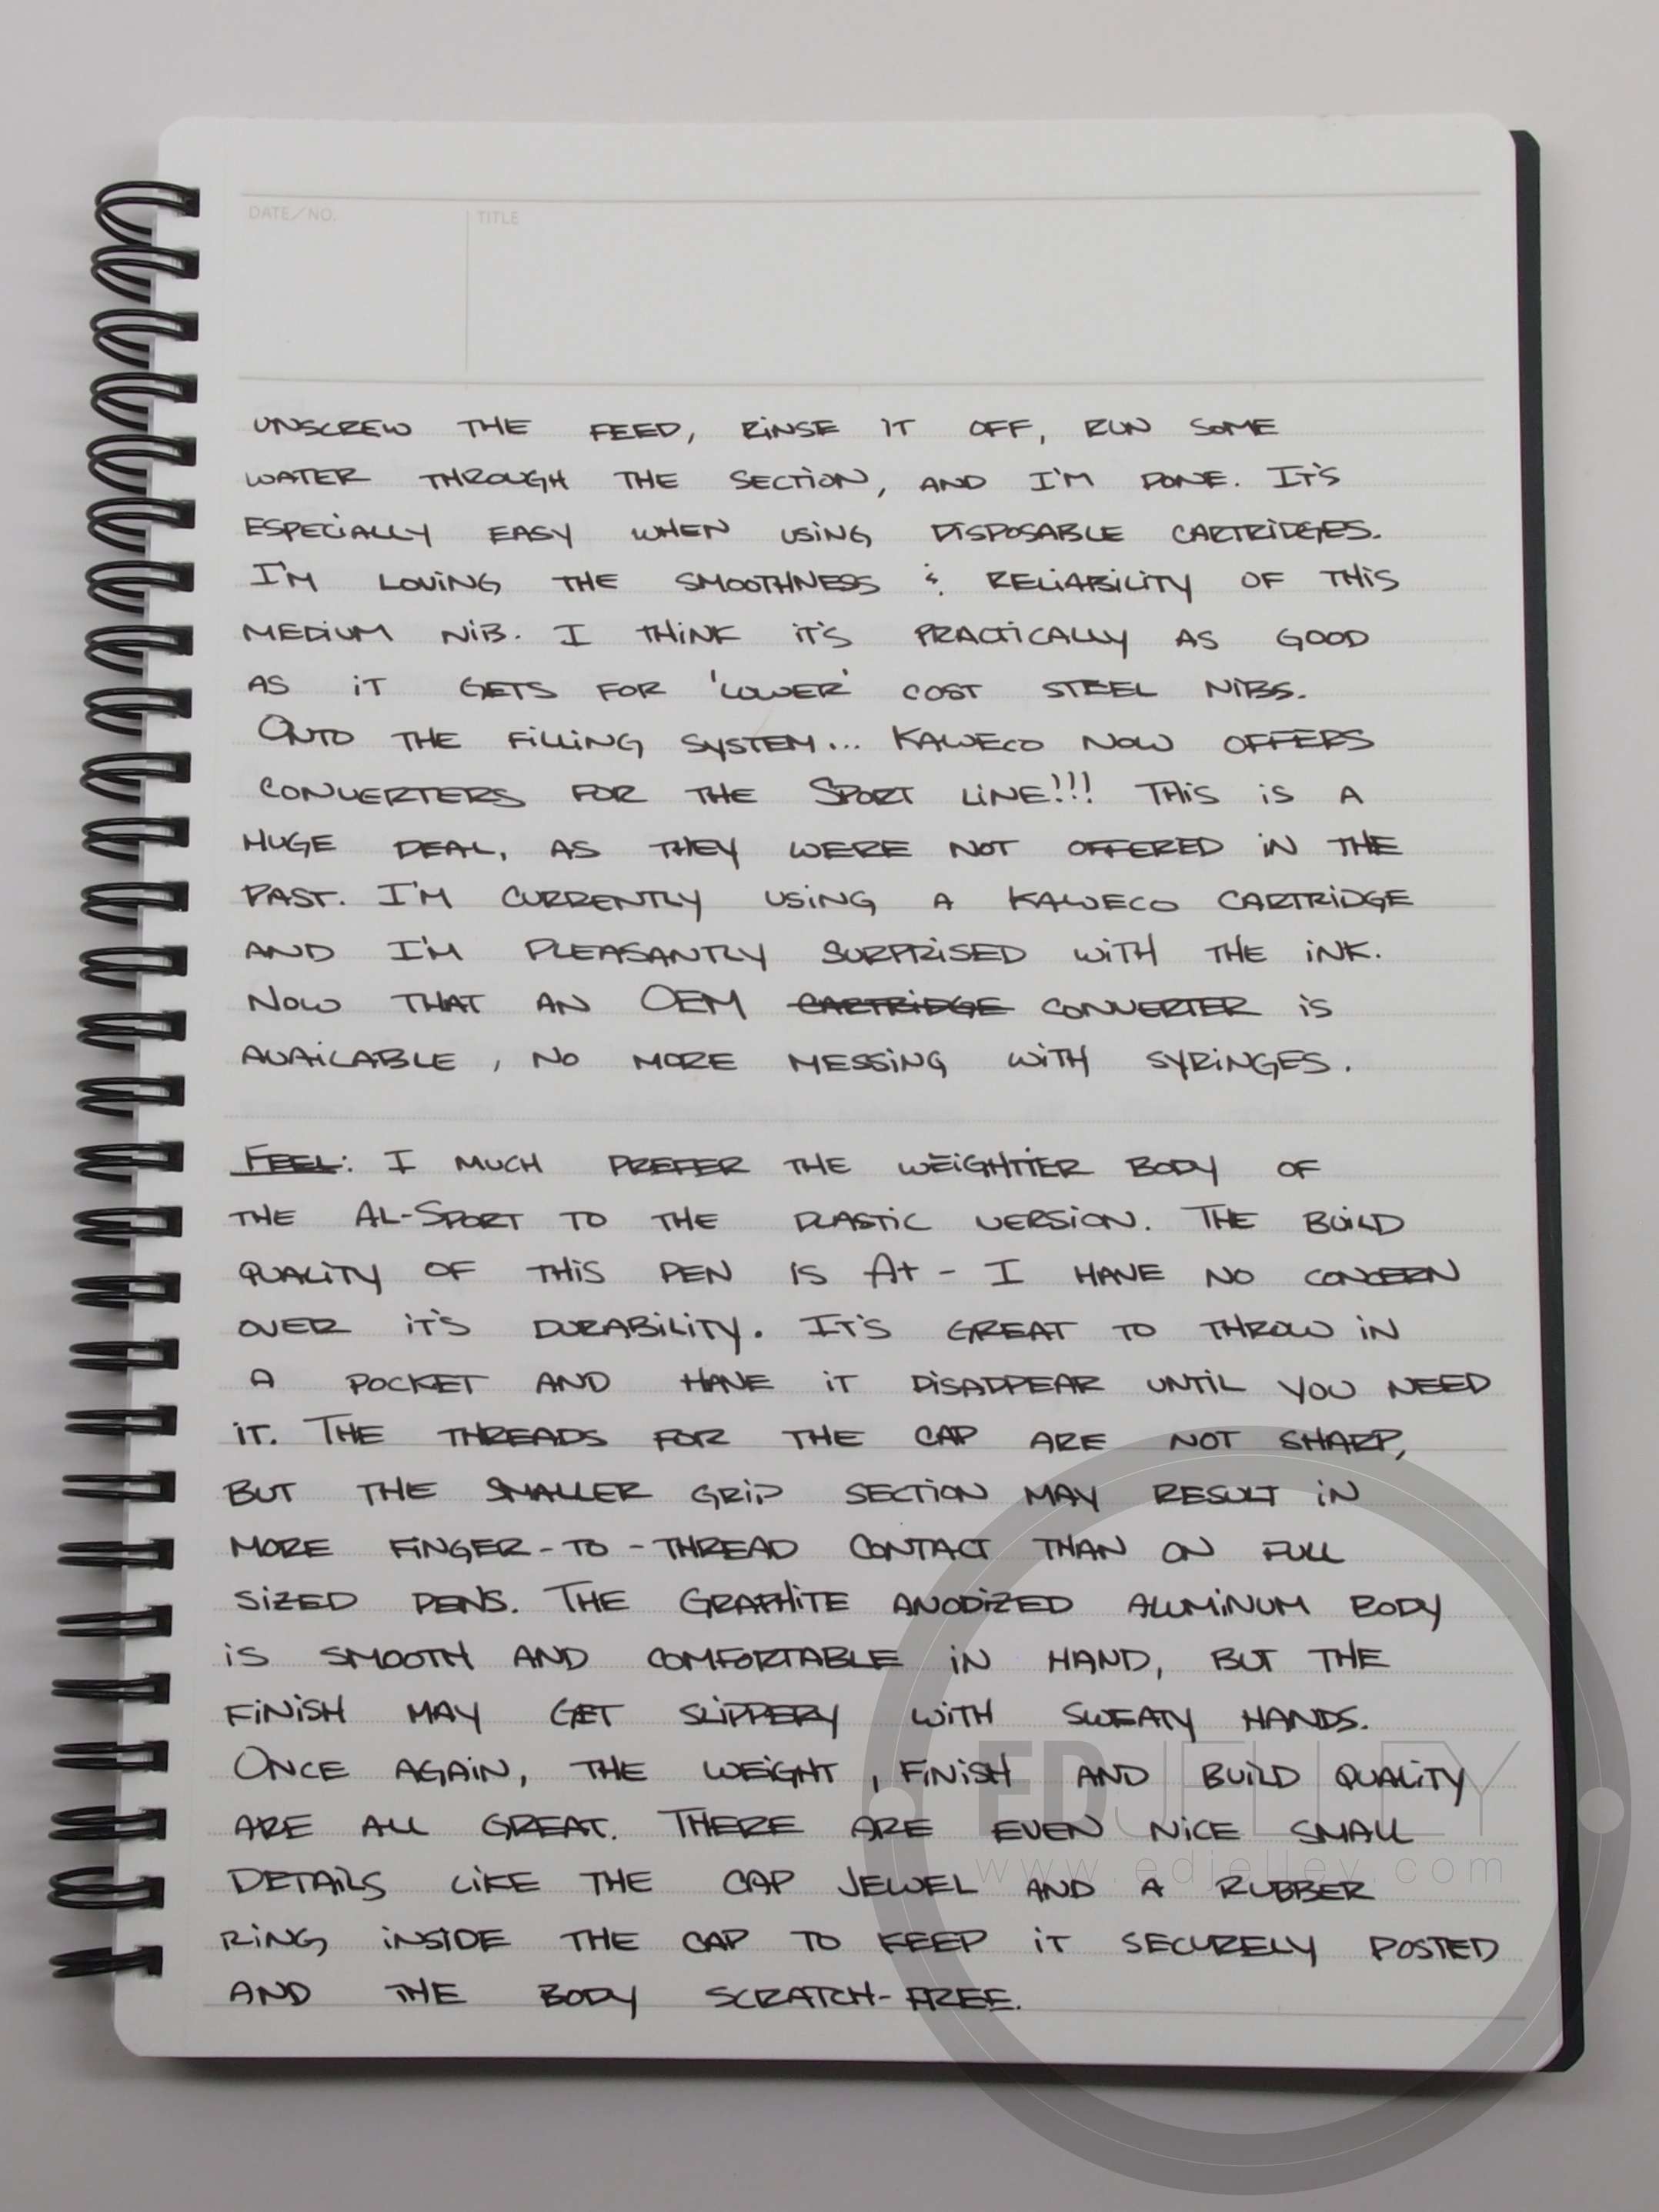 DATE/NO.
TITLE
UNSCREW THE FEED, RINSE IT OFF, RUN SOME
WATER THROUGH THE SECTION, AND I'M DONE. IT'S
ESPECIALLY EASY WHEN USING DISPOSABLE CARTRIDGES.
I'M LOVING THE SMOOTHNESS & RELIABILITY OF THIS
MEDIUM NIB. I THINK IT'S PRACTICALLY AS GOOD
AS IT GETS FOR 'LOWER' COST STEEL NIBS.
ONTO THE FILLING SYSTEM... KAWECO NOW OFFERS
CONVERTERS FOR THE SPORT LINE!!! THIS IS A
HUGE DEAL, AS THEY WERE NOT OFFERED IN THE
PAST. I'M CURRENTLY USING A KAWECO CARTRIDGE
AND I'M PLEASANTLY SURPRISED WITH THE INK.
NOW THAT AN OEM CARTRIDGE CONVERTER IS
AVAILABLE, NO MORE MESSING WITH SYRINGES.
FEEL: I MUCH PREFER THE WEIGHTIER BODY OF
THE AL-SPORT TO THE PLASTIC VERSION. THE BUILD
QUALITY OF THIS PEN IS A+ - I HAVE NO CONCERN
OVER IT'S DURABILITY. IT'S GREAT TO THROW IN
A POCKET AND HAVE IT DISAPPEAR UNTIL YOU NEED
IT. THE THREADS FOR THE CAP ARE NOT SHARP,
BUT THE SMALLER GRIP SECTION MAY RESULT IN
MORE FINGER-TO-THREAD CONTACT THAN ON FULL
SIZED PENS. THE GRAPHITE ANODIZED ALUMINUM BODY
IS SMOOTH AND COMFORTABLE IN HAND, BUT THE
FINISH MAY GET SLIPPERY WITH SWEATY HANDS.
ONCE AGAIN, THE WEIGHT, FINISH AND BUILD QUALITY
ARE ALL GREAT. THERE ARE EVEN NICE SMALL
DETAILS LIKE THE CAP JEWEL AND A RUBBER
RING INSIDE THE CAP TO KEEP IT SECURELY POSTED
AND THE BODY SCRATCH-FREE.
EDJELLEY
www.edjelley.com